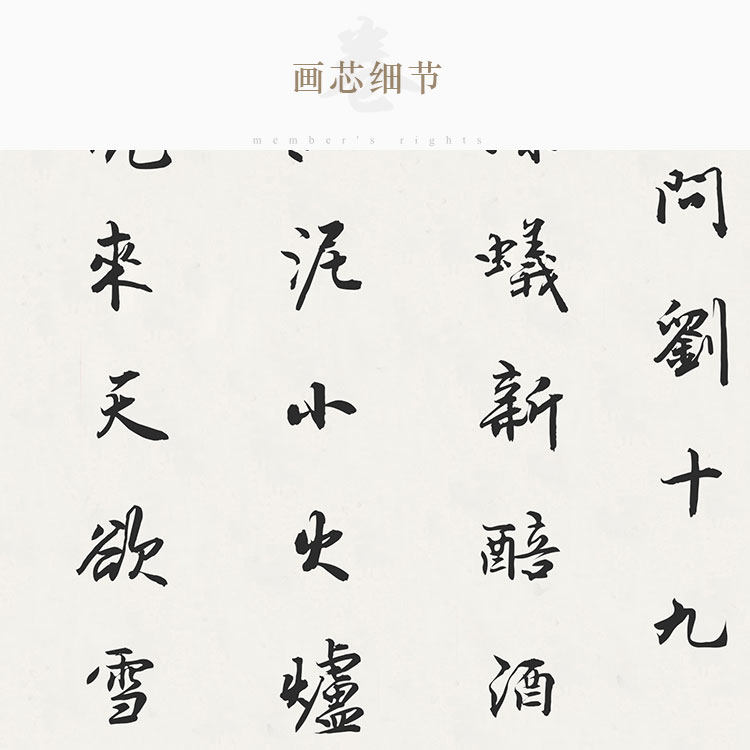 画芯细节
member's rights
問劉十九
蟻新醅酒
泥小火爐
來天欲雪